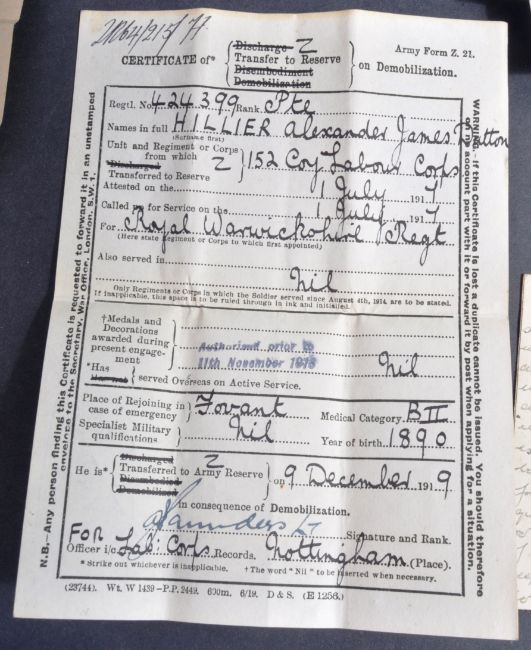 Army Form Z. 21.
CERTIFICATE of*
Discharge Z
Transfer to Reserve
Disembodiment
Demobilization
on Demobilization.
Regtl. No. 424399 Rank. Pte
Names in full HILLIER Alexander James
(Surname first)
Unit and Regiment or Corps
from which
152 Coy Labour Corps
Discharged
Transferred to Reserve Z
Attested on the 1 July 1917
Called up for Service on the 1 July 1917
For Royal Warwickshire Regt
(Here state Regiment or Corps to which first appointed)
Also served in
Nil
Only Regiments or Corps in which the Soldier served since August 4th, 1914, are to be stated.
If inapplicable, this space is to be ruled through in ink and initialled.
†Medals and
Decorations
awarded during
present engage-
ment
Authorised prior to
11th November 1918
Nil
*Has
served Overseas on Active Service.
Place of Rejoining in
case of emergency
Fovant
Medical Category. B II
Specialist Military
qualifications
Nil
Year of birth. 1890
He is*
Discharged
Transferred to Army Reserve Z
Disembodied
Demobilized
on 9 December 1919
in consequence of Demobilization.
Saunders Lt
Signature and Rank.
FOR
Officer i/c Lab: Corps Records. Nottingham (Place).
* Strike out whichever is inapplicable. † The word "Nil" to be inserted when necessary.
(23744). Wt. W 1439-P.P. 2449. 600m. 6/19. D & S. (E 1256.)
N.B.—Any person finding this Certificate is requested to forward it in an unstamped
envelope to the Secretary, War Office, London, S.W. 1.
WARNING.—If this Certificate is lost a duplicate cannot be issued. You should therefore
on no account part with it or forward it by post when applying for a situation.